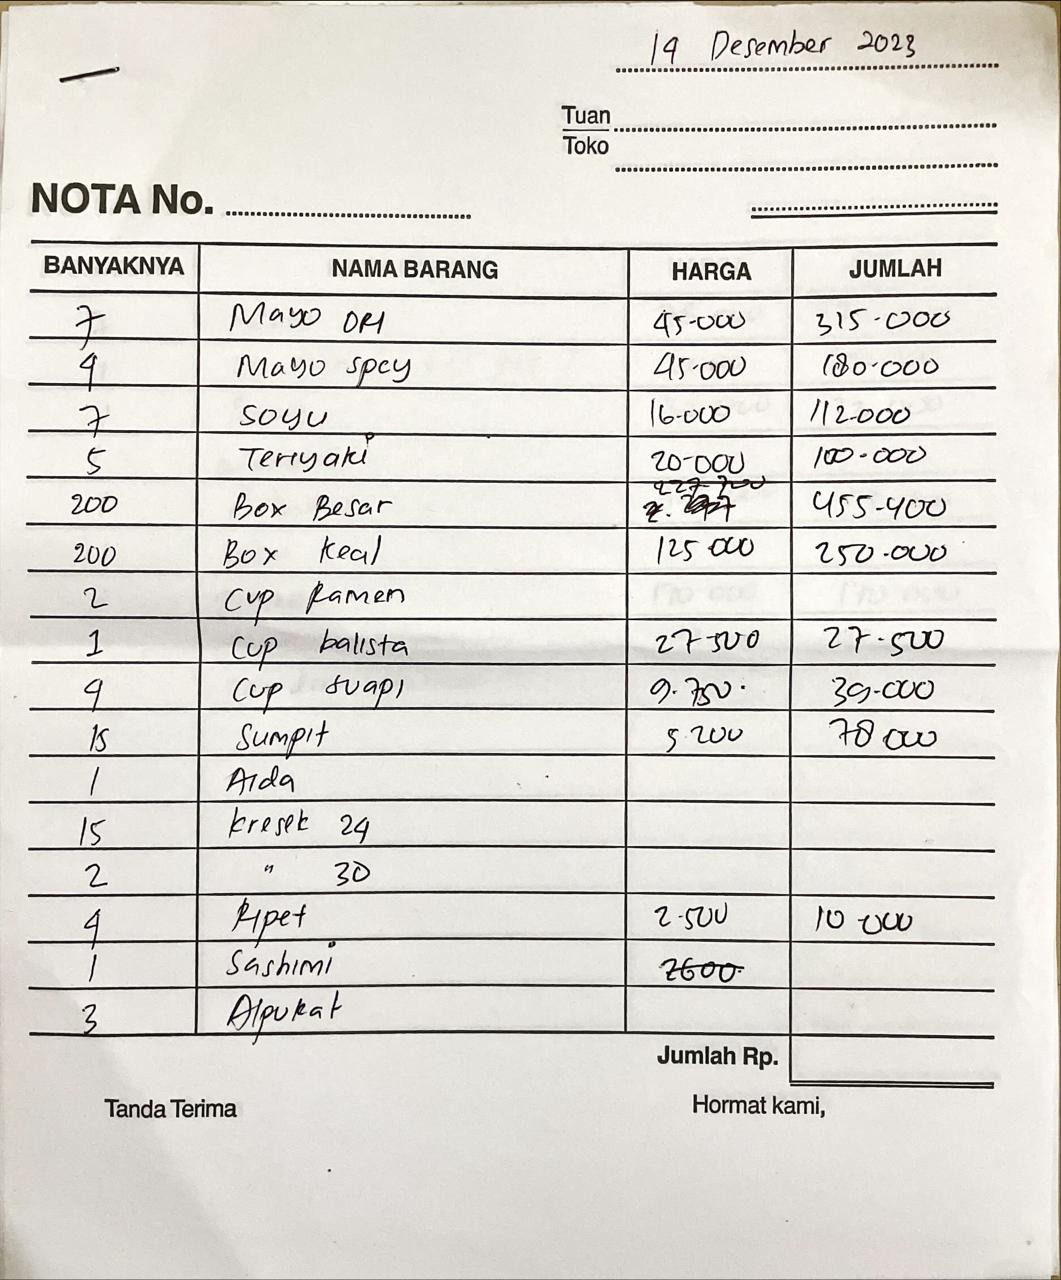 14 Desember 2023
Tuan
Toko
NOTA No.
BANYAKNYA NAMA BARANG HARGA JUMLAH
7 Mayo ORI 45.000 315.000
4 Mayo spcy 45.000 180.000
7 Soyu 16.000 112.000
5 Teriyaki 20.000 100.000
200 Box Besar 227.700 455.400
200 Box Keal 125 000 250.000
2 Cup Ramen
1 Cup balista 27 500 27.500
4 Cup suapi 9.750. 39.000
15 Sumpit 5.200 78 000
1 Aida
15 kresek 24
2 " 30
4 Pipet 2.500 10 000
1 Sashimi 2600
3 Alpukat
Jumlah Rp.
Tanda Terima Hormat kami,